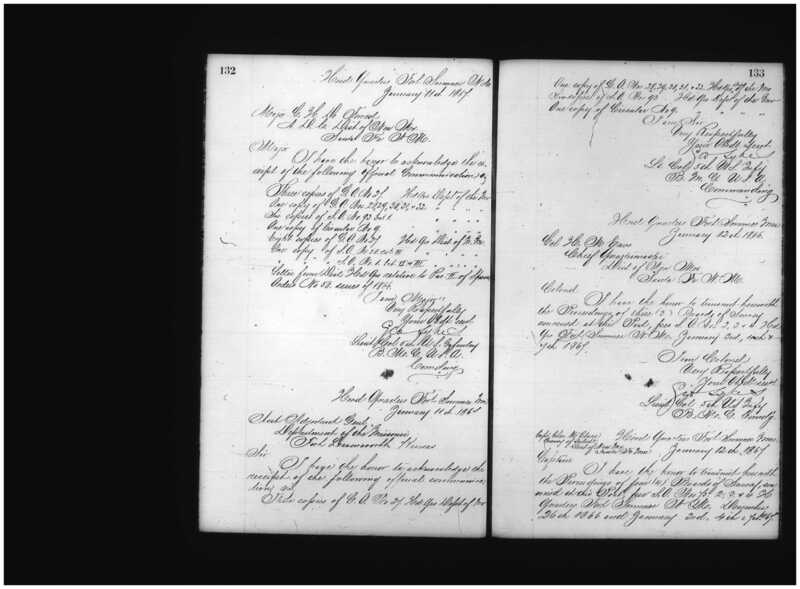 132
Head Quarters Fort Sumner N. M.
January 11th 1867
Major C. H. De Forrest
A. A. A. G. Dist of New Mex
Santa Fe N. M.
Major
I have the honor to acknowledge the re-
ceipt of the following official Communications,
Three copies of G. O. No 27 Hd Qrs Dept of the Mo
One copy of G. O. Nos. 28, 29, 30, 31, & 32 " " " "
Six copies of S. O. No 93 " " " "
One copy of Circular No 9. " " " "
Eight copies of G. O. No 27 Hd Qrs Dist of N. Mex
One copy of S. O. No
" " " S. O. No 1.
Letter from Dist Hd Qrs relative to Par II of Special
Orders No 52 series of 1864.
I am, Major
Very Respectfully
Your Obdt servt
Lieut Col 5th U. S. Infantry
B. M. G. U. S. A.
Comdng
Head Quarters Fort Sumner N. M.
January 11th 1867
Asst Adjutant Genl,
Department of the Missouri
Fort Leavenworth Kansas
Sir
I have the honor to acknowledge the
receipt of the following official communica-
tions,
Five copies of G. O. No 27 Hd Qrs Dept of Mo
133
One copy of G. O. Nos. 28, 29, 30, 31, & 32 Hd Qrs Dept of the Mo
copies of S. O. No 93 Hd Qrs Dept of the Mo
One copy of Circular No 9. " " " "
I am Sir
Very Respectfully
Your Obdt Servt
Lt Col 5th U. S. Infy
B. M. G. U. S. A.
Commanding
Head Quarters Fort Sumner N. M.
January 12th 1867.
Col H. M. Enos
Chief Quartermaster
Dist of New Mex
Santa Fe N. M.
Colonel
I have the honor to transmit herewith
the Proceedings of three (3) Boards of Survey
convened at this Post, per S. O. Nos 2, 3 & 4 Hd
Qrs Fort Sumner N. M. January 2nd, 4th &
7th 1867.
I am Colonel
Very Respectfully
Your Obdt servt
Lieut Col 5th U. S. Infy
B. M. G. Comdg
Head Quarters Fort Sumner N. M.
January 12th 1867
Dist of New Mex
Santa Fe N. M.
Captain
I have the honor to transmit herewith
the Proceedings of four (4) Boards of Survey, con-
vened at this Post, per S. O. Nos 2, 3 & 4 Hd
Quarters Fort Sumner N. M., December
26th 1866 and January 2nd, 4th & 7th 1867.